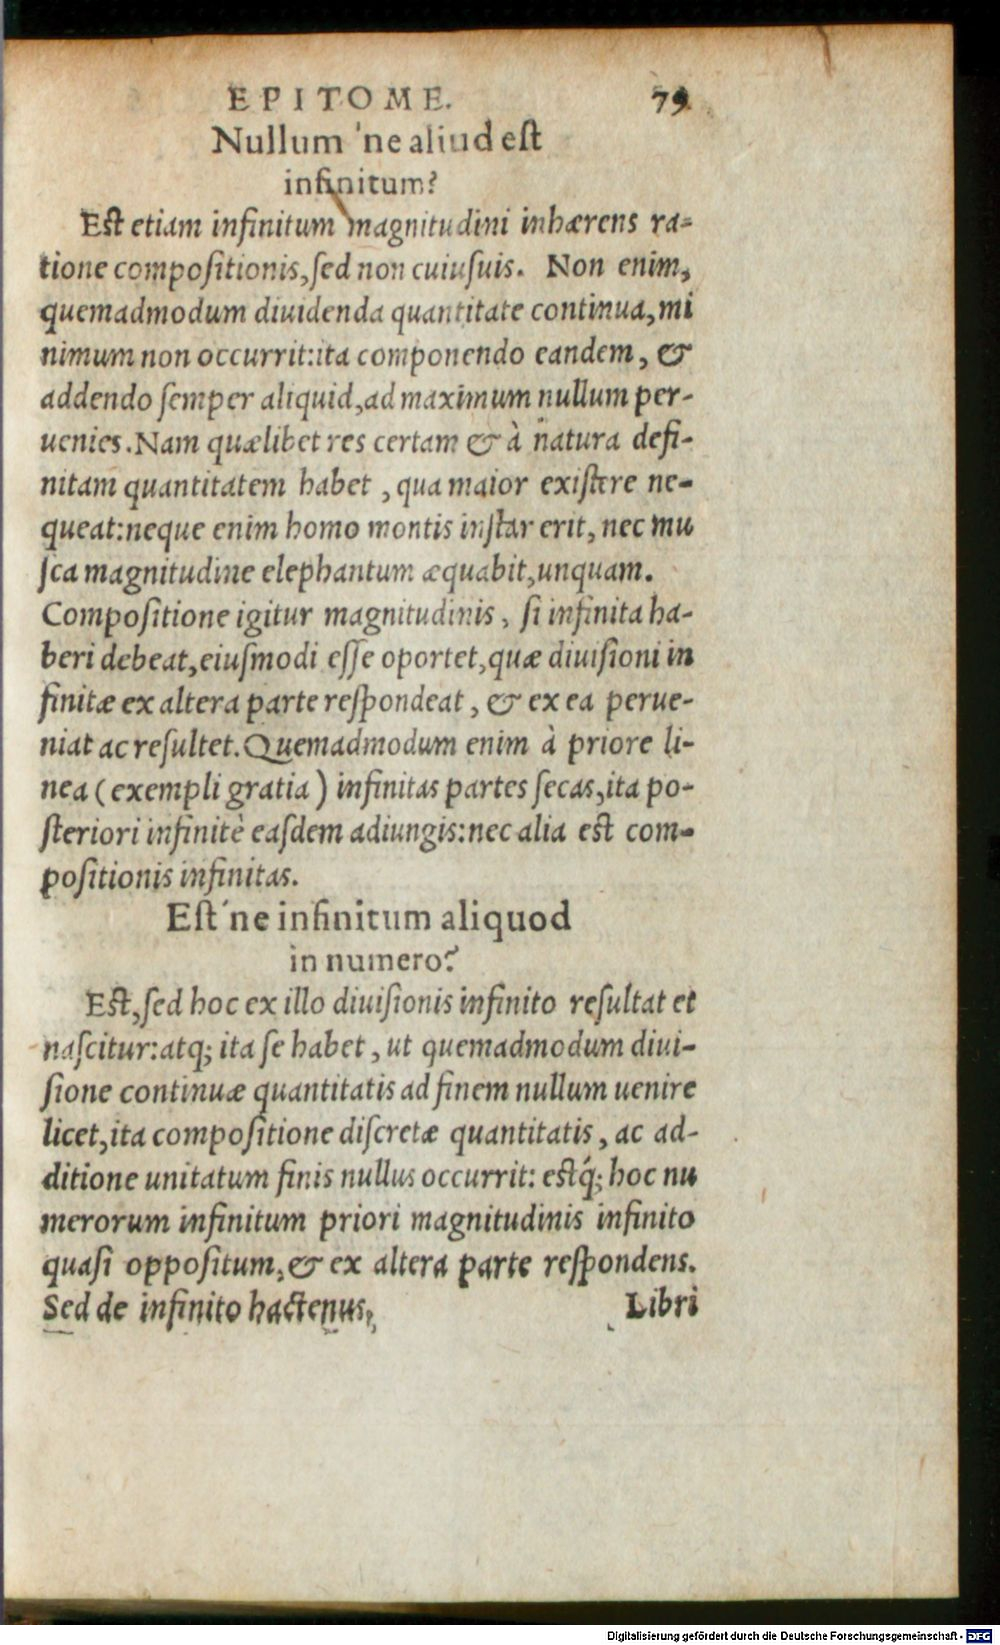 EPITOME. 79
Nullum 'ne aliud est
infinitum?
Est etiam infinitum magnitudini inhærens ra-
tione compositionis, sed non cuiusuis. Non enim,
quemadmodum diuidenda quantitate continua, mi
nimum non occurrit: ita componendo eandem, &
addendo semper aliquid, ad maximum nullum per-
uenies. Nam quælibet res certam & à natura defi-
nitam quantitatem habet, qua maior existere ne-
queat: neque enim homo montis instar erit, nec mu
sca magnitudine elephantum æquabit, unquam.
Compositione igitur magnitudinis, si infinita ha-
beri debeat, eiusmodi esse oportet, quæ diuisioni in
finitæ ex altera parte respondeat, & ex ea perue-
niat ac resultet. Quemadmodum enim à priore li-
nea (exempli gratia) infinitas partes secas, ita po-
steriori infinitè easdem adiungis: nec alia est com-
positionis infinitas.
Est 'ne infinitum aliquod
in numero?
Est, sed hoc ex illo diuisionis infinito resultat et
nascitur: atq; ita se habet, ut quemadmodum diui-
sione continuæ quantitatis ad finem nullum uenire
licet, ita compositione discretæ quantitatis, ac ad-
ditione unitatum finis nullus occurrit: estq́; hoc nu
merorum infinitum priori magnitudinis infinito
quasi oppositum, & ex altera parte respondens.
Sed de infinito hactenus, Libri
Digitalisierung gefördert durch die Deutsche Forschungsgemeinschaft - DFG